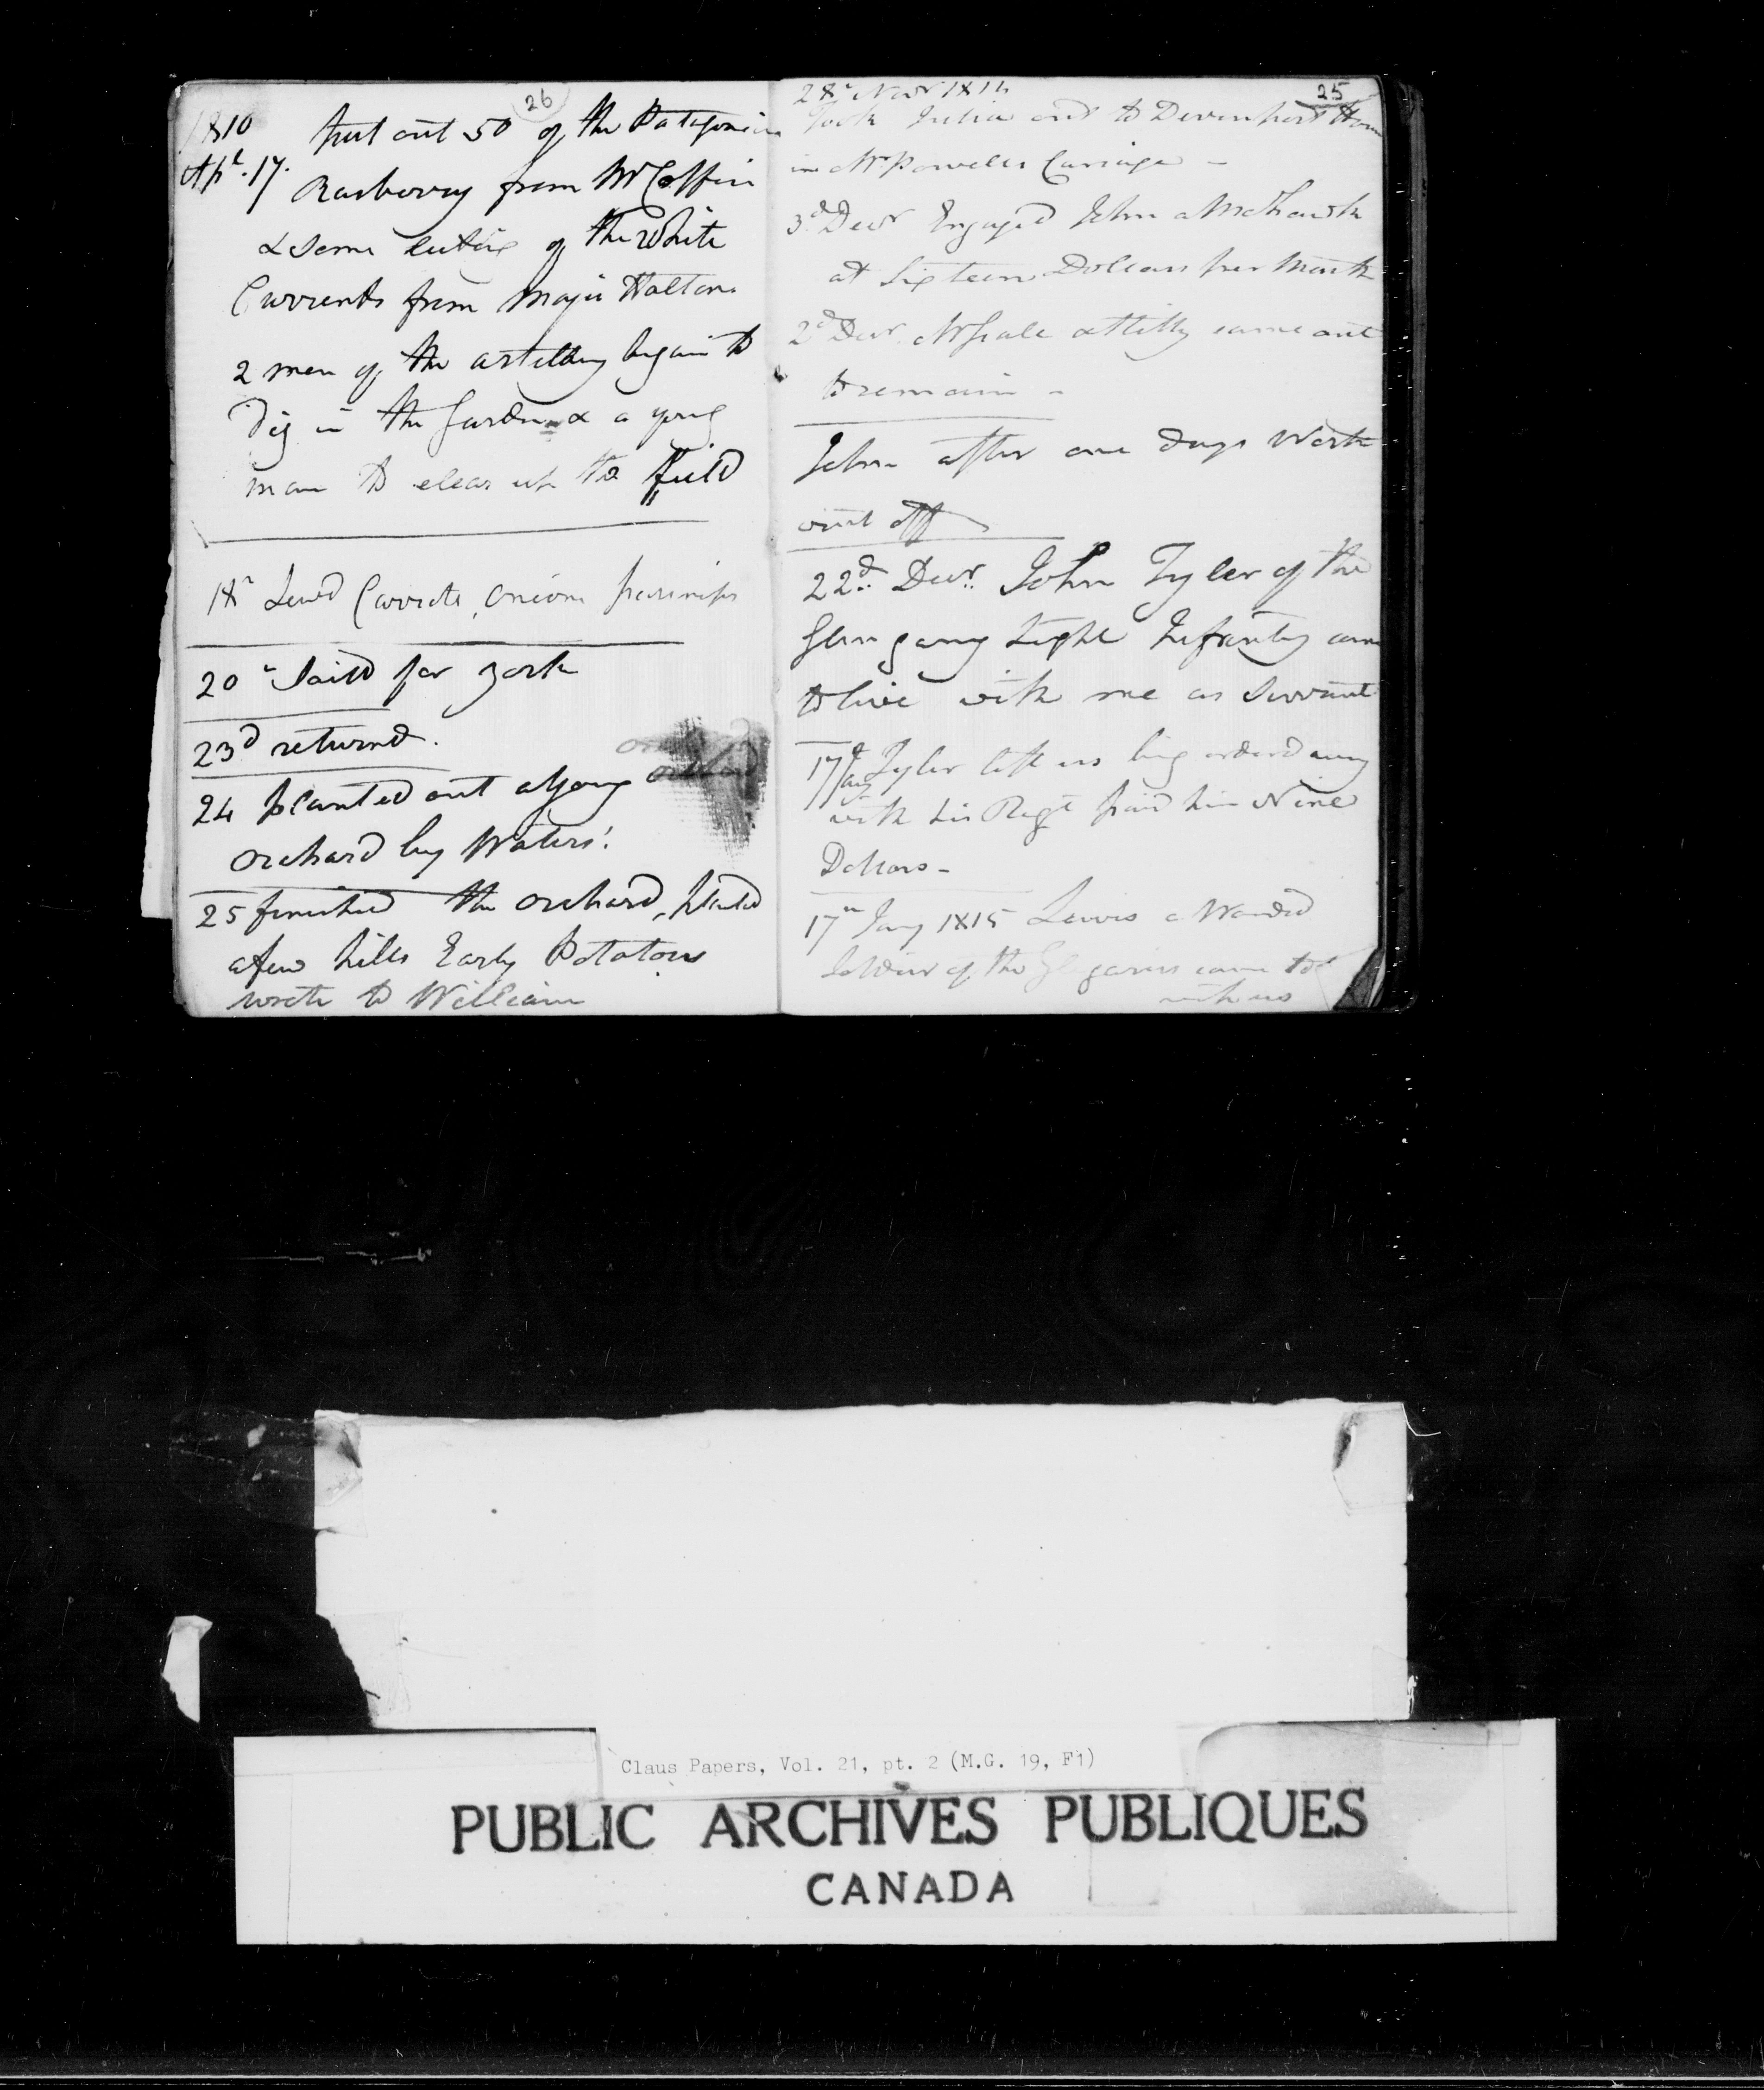 26
1810 put out 50 of the Patagonian
Apl. 17. Rasberry from Mr Coffin
& some cuttings of the White
Currents from Major Halton
2 men of the artillery began to
Dig in the Garden & a young
man to clear up the field
18th Sew'd Carrots, Onions parsnips
20th Sail'd for York
23d returned.
24 planted out a young
orchard by Waters'.
25 finished the orchard, planted
a few hills Early Potatoes
wrote to William
25
28th Novr 1814
Took Julia out to Davenport
in Mr Powells Carriage -
3d Decr Engaged John a Mohawk
at Sixteen Dollars per Month
2d Decr came out
to remain -
John after one days Work
went off
22d: Decr: John Tyler of the
Glengarry Light Infantry came
to live with me as Servant
17th Jany Tyler left us being ordered away
with his Regt paid him Nine
Dollars -
17th Jany 1815 Lewis a Wounded
Soldier of the Glengarries came to
with us
Claus Papers, Vol. 21, pt. 2 (M.G. 19, F1)
PUBLIC ARCHIVES PUBLIQUES
CANADA